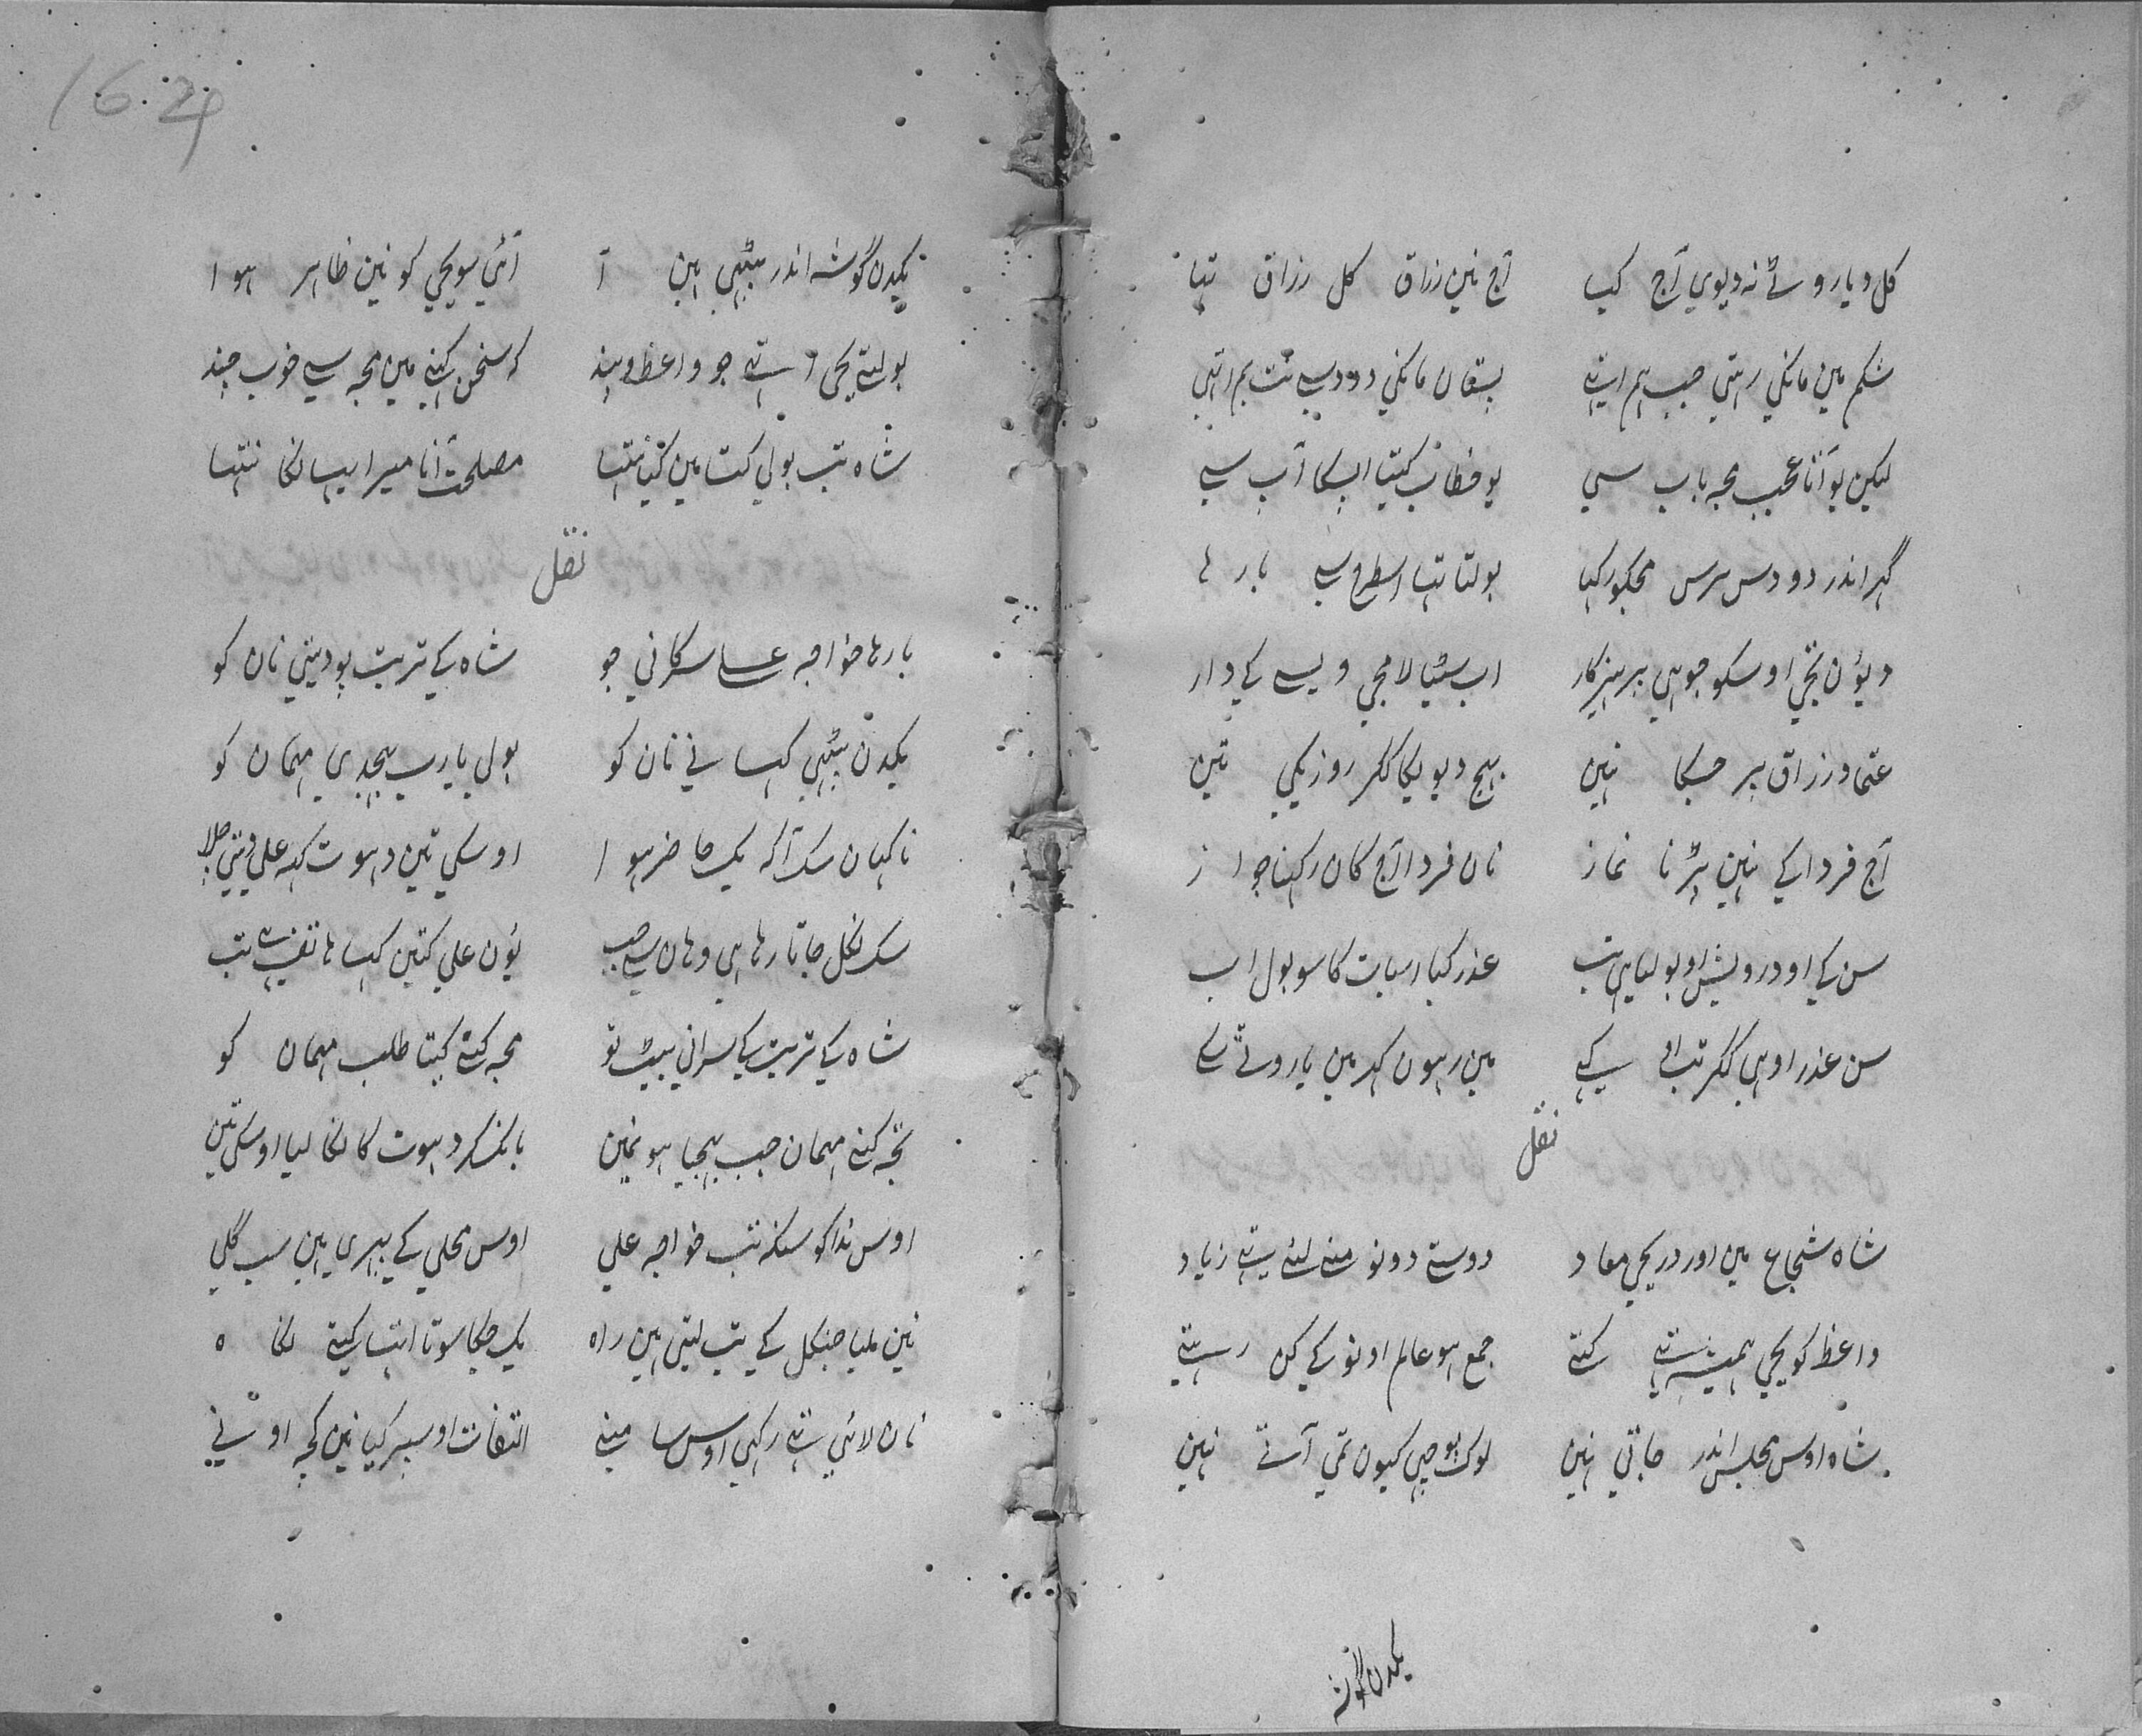 کل دیا روٹے نہ دیوی آج کیا آج نین رزاق کل رزاق تہا
شکم مین مانکی رہتی جب ہم اتہے پستان مانکی دودسی
لیکن یو آنا عجب مجہ باپ سی یو آپ سے
گہر اندر دودس برس مجکو رکہا بولتا تہا اسطرح سے بارہا
دیؤن تجی اوسکو جو ہی پرہیزکار اب لا مجی ویسے کے دار
عتماد رزاق پر جسکا نہین بہیج دیویکا ککر روزیکی تین
آج فردا کے نہین پڑنا نماز نان فردا آج کان رکہنا جواز
سن کے او درویش او بولیا ہی تب عذر کیا اسبات کا سو بول اب
سن عذر او ہی ککر تب او کہے مین رہون کہر مین یاروٹے
نقل
شاہ شجاع مین اور دریحی معاد دوستے دونو منے لئے تہے زیاد
واعظ کو یحی ہمیشہ تہے کتے جمع ہو عالم اونو کے کن رہتے
شاہ اوس مجلس اندر جاتی نہین لوک پوچہی کیون تمی آتے نہین
یکدن گوشہ
یکدن گوشہ اندر بیٹہی ہین آ آئی سو یحی کو نین ظاہر ہوا
بولتے یحی تہے جو واعظ و پند کہ سخن کہنے مین مجہ سے خوب چند
شاہ تب بولی کتا مین کیا نتہا مصلحت آنا میرا یہانکا نتہا
نقل
بارہا خواجہ علی سیرکانی جو شاہ کے تربت پو دیتی نان کو
یکدن بیٹہی کہانے نان کو بولی یارب بہیج دی مہمان کو
ناکہان سک آکہ یک حاضر ہوا اوسکی تین دہوت کہہ علی دیتی چلا
سک نکل جاتا رہا ہی وہان سے جب یؤن علی کتین کہا ہاتف نے تب
شاہ کے تربت کے سرانی بیٹ تو مجہ کنے کیتا طلب مہمان کو
تجہ کنے مہمان جب بہیجیا ہو نمین بانک کر دہوت کا لیا اوسکی تین
اوس ندا کو سنکہ تب خواجہ علی اوس محلی کے پہری ہین سب گلی
نین ملیا جنکل کے تب لیتی ہین راہ یک جکا سوتا اتہا کیتے نکاہ
نان لائی تہے رکہی اوس سامنے التفات اوسپر کیا نین کچہ اونے